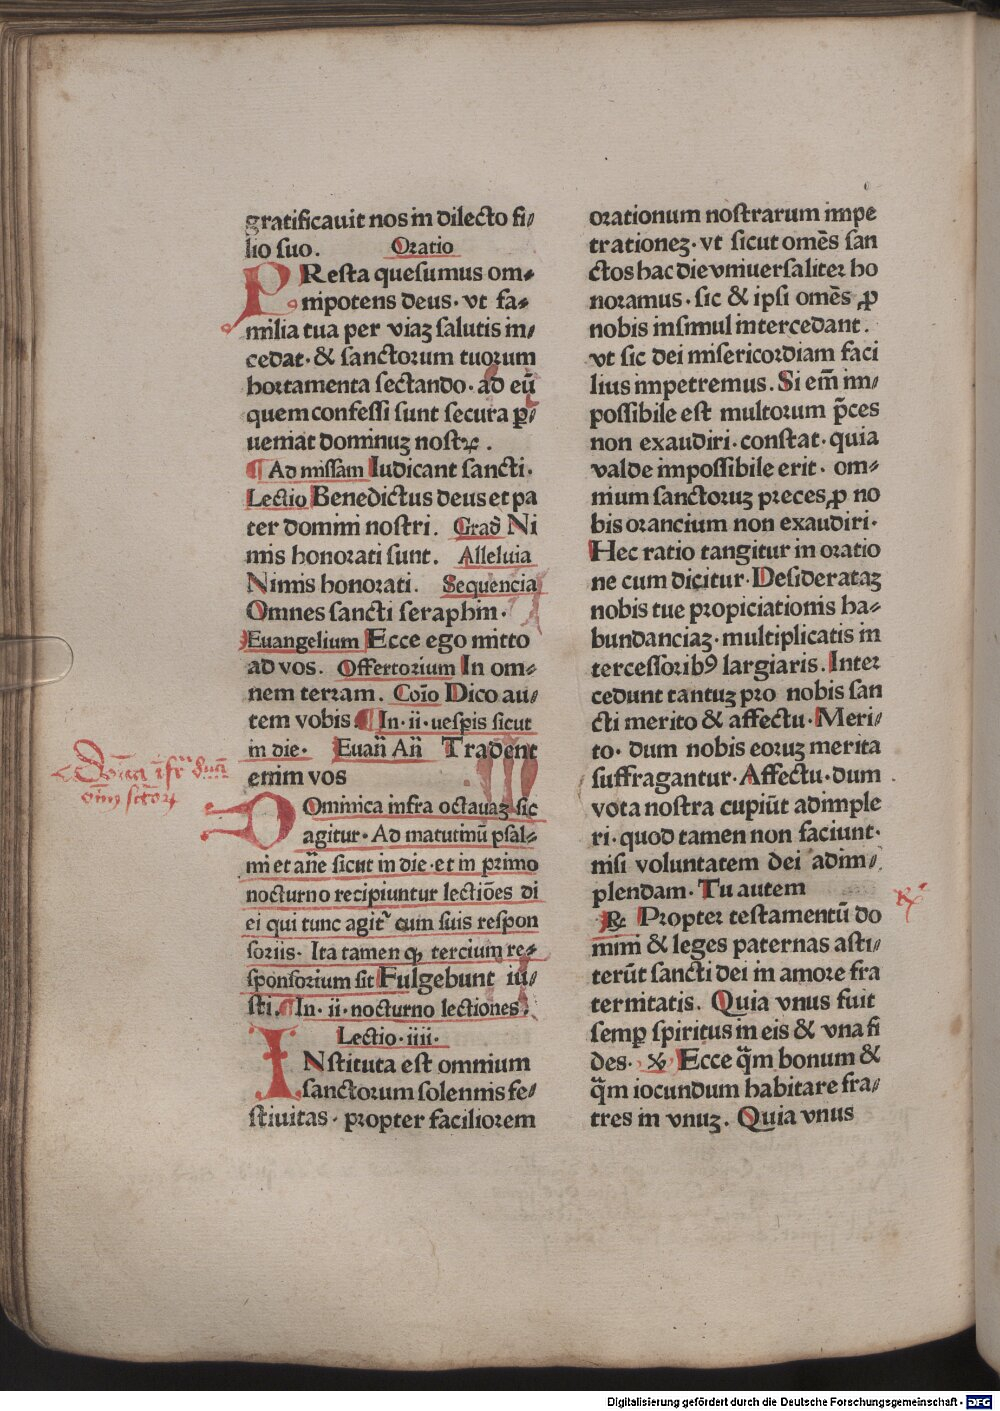 gratificauit nos in dilecto fi⸗
lio suo. Oratio
PResta quesumus om⸗
nipotens deus· vt fa⸗
milia tua per viaꝫ salutis in⸗
cedat· & sanctorum tuorum
hortamenta sectando· ad eū
quem confessi sunt secura ꝑ⸗
ueniat dominuꝫ nostꝝ.
¶ Ad missam Iudicant sancti·
Lectio Benedictus deus et pa
ter domini nostri. Grad̄ Ni
mis honorati sunt. Alleluia
Nimis honorati. Sequencia
Omnes sancti seraphin·
Euangelium Ecce ego mitto
ad vos. Offertorium In om⸗
nem terram. Coīo Dico au⸗
tem vobis ¶ In· ii· vespis sicut
in die· Euan̄ An̄ Tradent
enim vos
DOminica infra octauaꝫ sic
agitur· Ad matutinū psal⸗
mi et an̄e sicut in die· et in primo
nocturno recipiuntur lectiōes di
ei qui tunc agit᷑ cum suis respon
soriis· Ita tamen ꝙ tercium re⸗
sponsorium sit Fulgebunt iu⸗
sti. ¶ In· ii· nocturno lectiones·
Lectio· iiii·
INstituta est omnium
sanctorum solennis fe⸗
stiuitas· propter faciliorem
orationum nostrarum impe
trationeꝫ· vt sicut omēs san
ctos hac die vniuersaliter ho
noramus· sic & ipsi omēs ꝓ
nobis insimul intercedant.
vt sic dei misericordiam faci
lius impetremus. Si em̄ im⸗
possibile est multorum p̄ces
non exaudiri· constat· quia
valde impossibile erit· om⸗
nium sanctoruꝫ preces ꝓ no
bis orancium non exaudiri·
Hec ratio tangitur in oratio
ne cum dicitur· Desiderataꝫ
nobis tue propiciationis ha⸗
bundanciaꝫ· multiplicatis in
tercessorib9 largiaris. Inter
cedunt tantuꝫ pro nobis san
cti merito & affectu· Meri⸗
to· dum nobis eoruꝫ merita
suffragantur· Affectu· dum
vota nostra cupiūt adimple
ri· quod tamen non faciunt·
nisi voluntatem dei adim⸗
plendam· Tu autem
℞ Propter testamentū do
mini & leges paternas asti⸗
terūt sancti dei in amore fra
ternitatis. Quia vnus fuit
semꝑ spiritus in eis & vna fi
des· ℣ Ecce q̄m bonum &
q̄m iocundum habitare fra⸗
tres in vnuꝫ. Quia vnus
℞
Digitalisierung gefördert durch die Deutsche Forschungsgemeinschaft - DFG